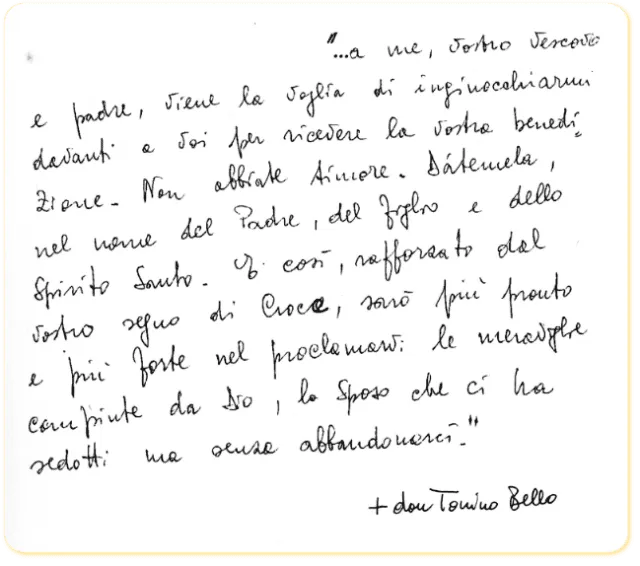 "...a me, vostro vescovo
e padre, viene la voglia di inginocchiarmi
davanti a voi per ricevere la vostra benedi
zione. Non abbiate timore. Dátemela,
nel nome del Padre, del Figlio e dello
Spirito Santo. E così, rafforzato dal
vostro segno di Croce, sarò più pronto
e più forte nel proclamarvi le meraviglie
compiute da Dio, lo Sposo che ci ha
sedotti ma senza abbandonarci."
+ don Tonino Bello